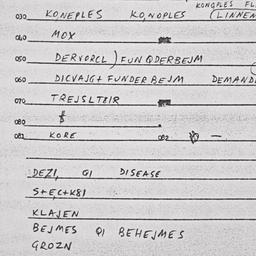 KONGPLES FL
030 KONEPLES KO,NOPLES (LINNEN
040 MOX
050 DERVORCL) FUN QDERBEJM
060 DICVAJG+ FUNDERBEJM DEMAND
070 TREJSLT8IR
080
081 KORE 082 —
DEZI, GI DISEASE
S+EC+K8I
KLAJEN
BEJMES QI BEHEJMES
GROZN